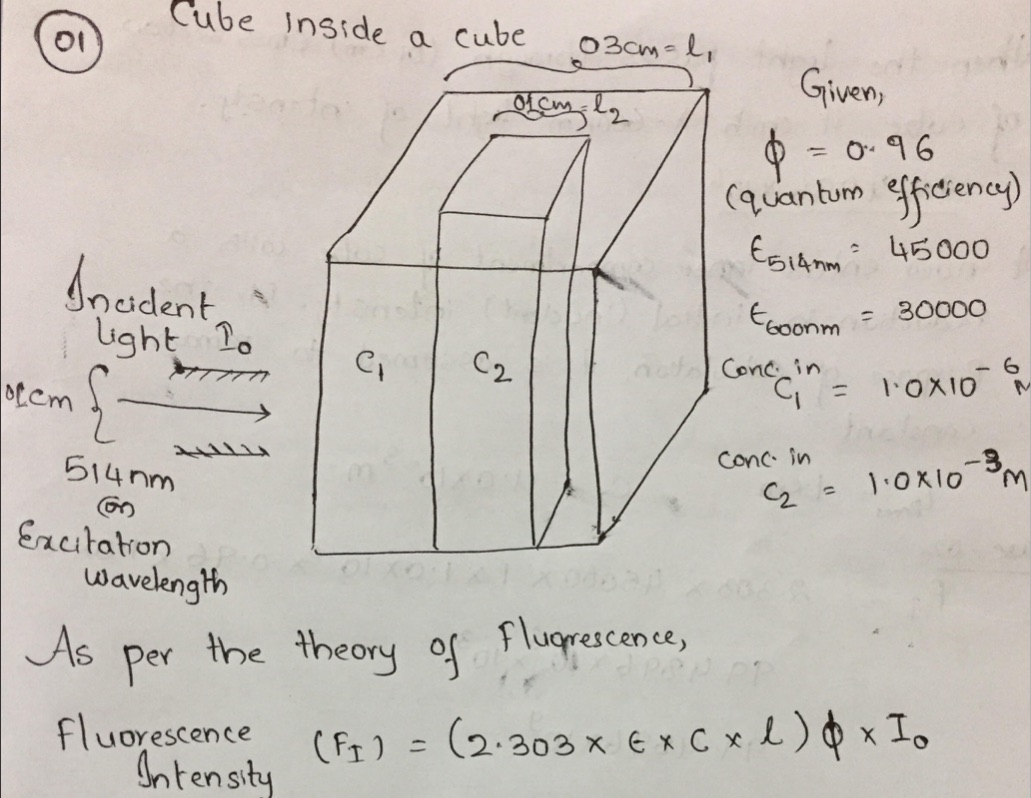 01
Cube inside a cube
03cm = l₁
01cm = l₂
Given,
ϕ = 0.96
(quantum efficiency)
ϵ514nm = 45000
ϵ600nm = 30000
Conc. in C₁ = 1.0×10⁻⁶ M
Conc. in C₂ = 1.0×10⁻³ M
Incident
light I₀
01cm
514nm
(or)
Excitation
wavelength
C₁ C₂
As per the theory of Fluorescence,
Fluorescence
Intensity (FI) = (2.303 × ϵ × C × l) ϕ × I₀